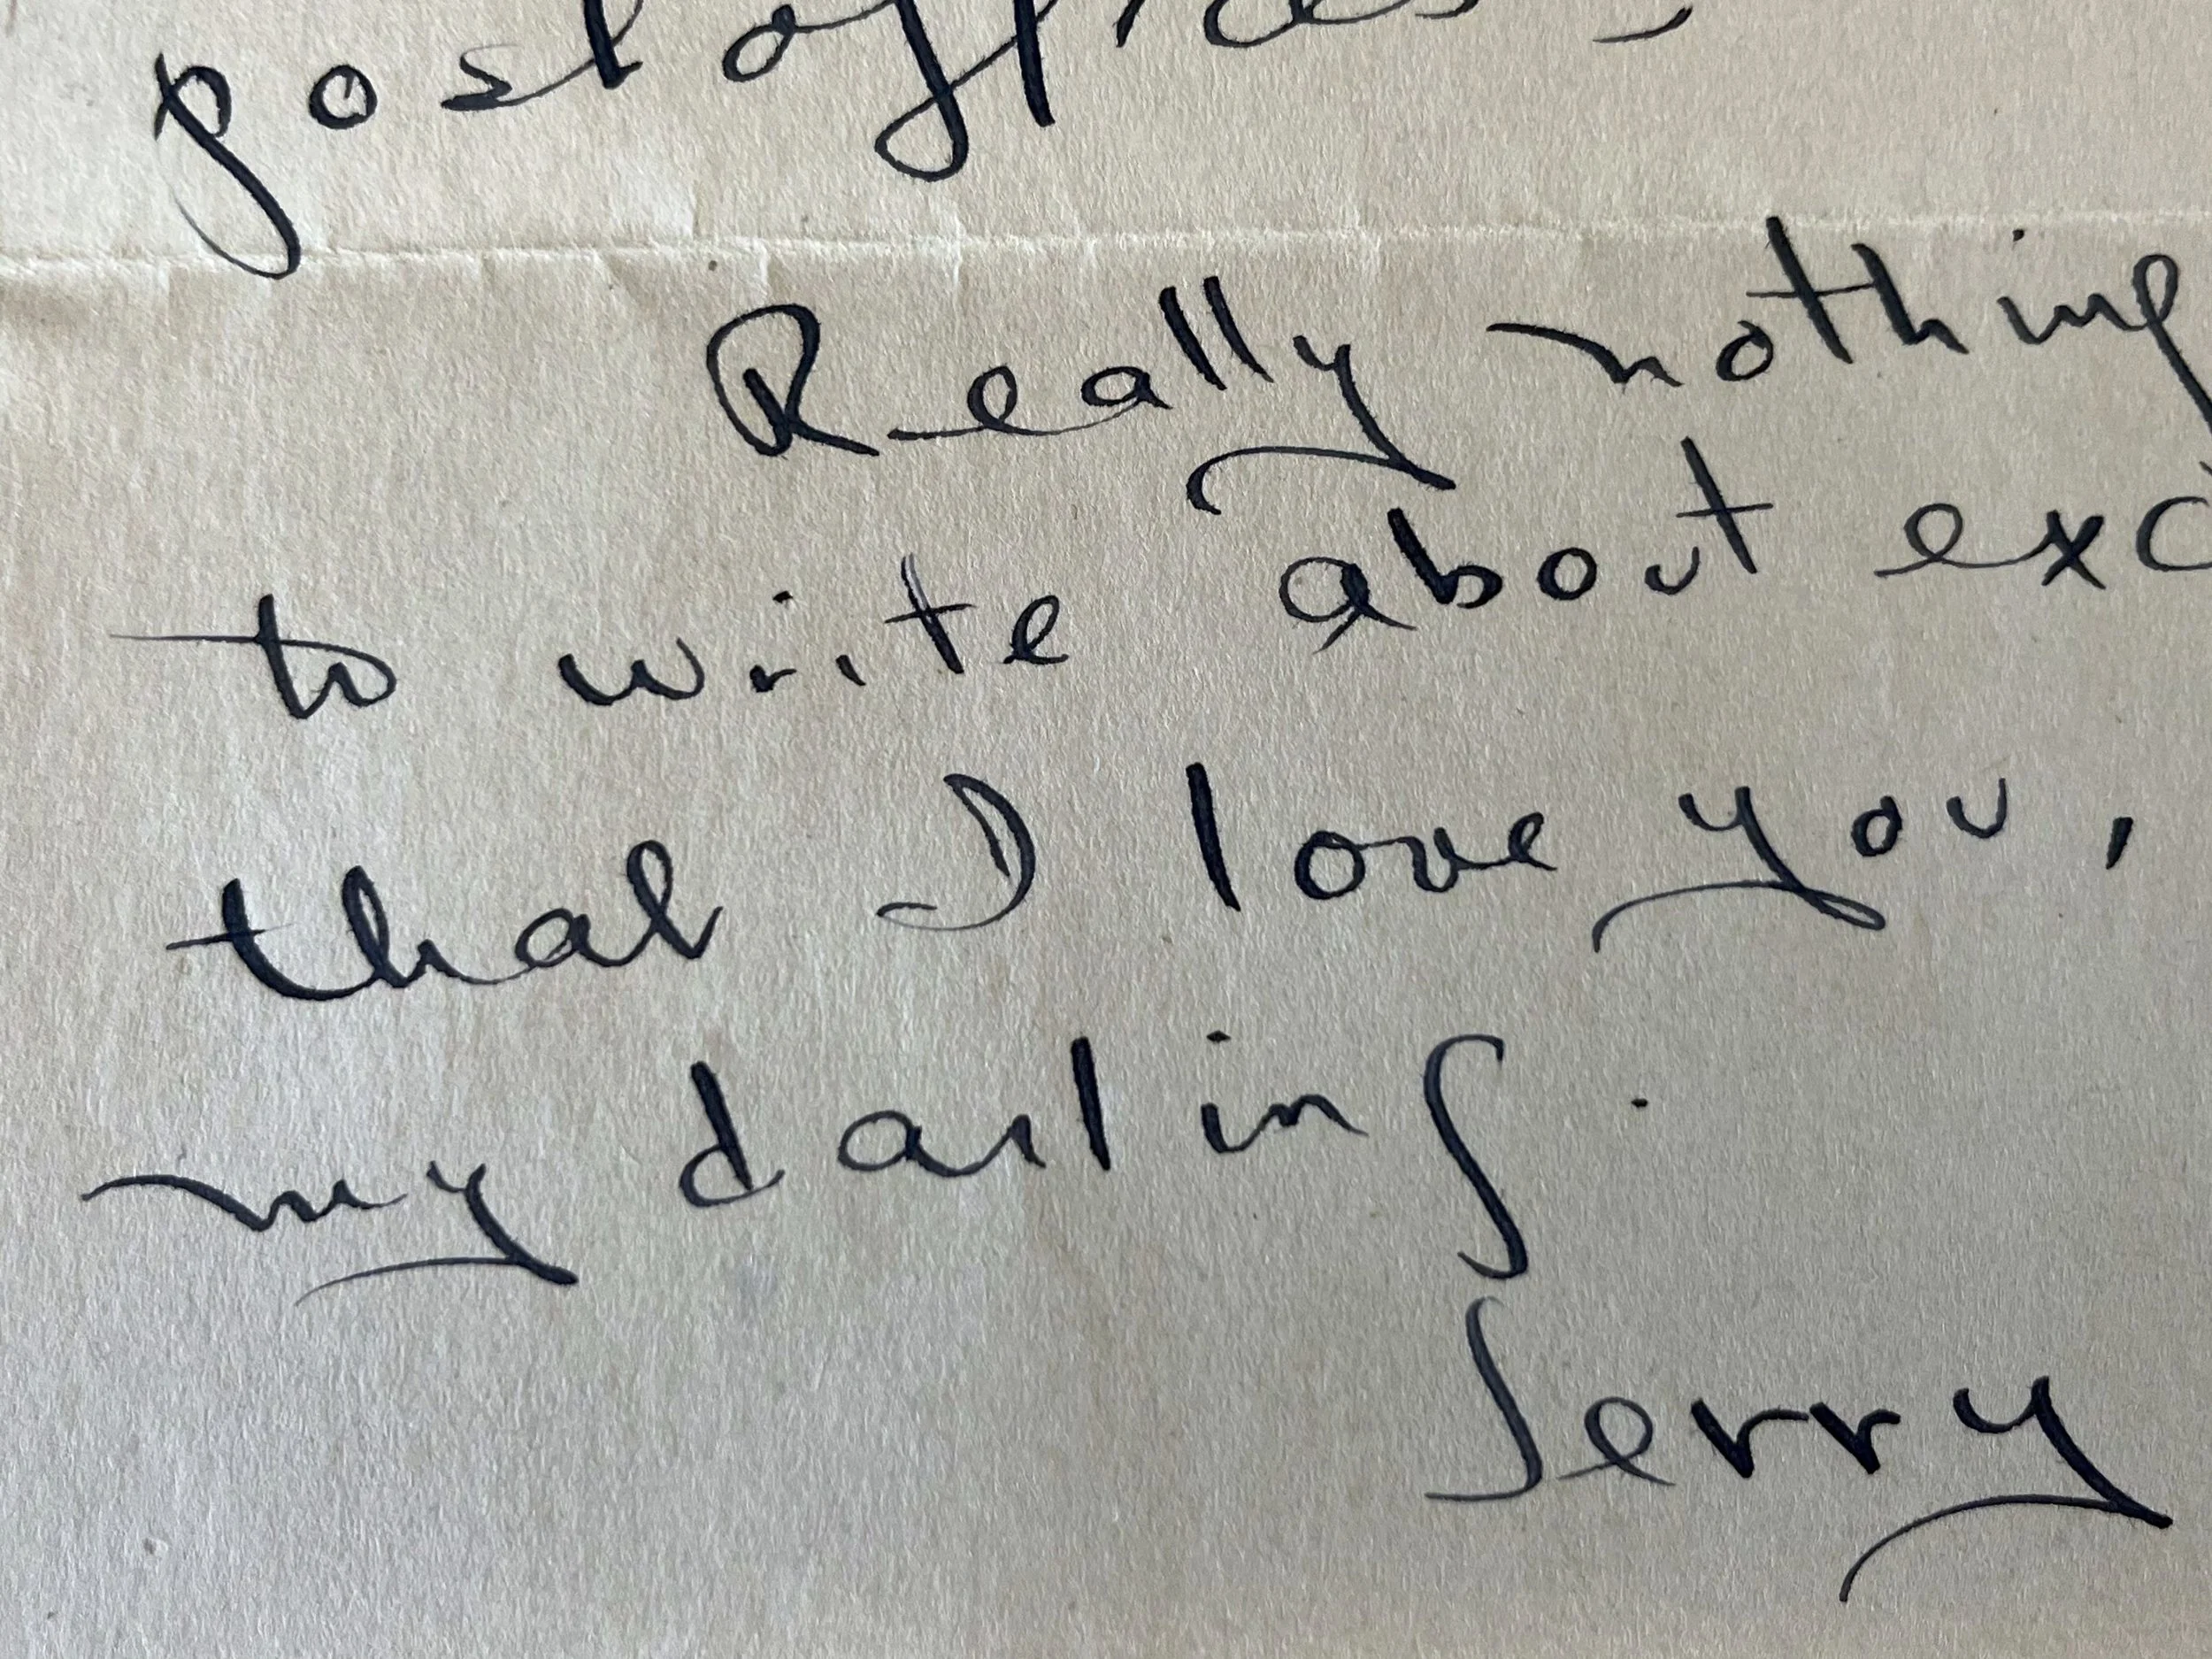 post offices -
Really nothing
to write about exc
that I love you,
my darling.
Jerry